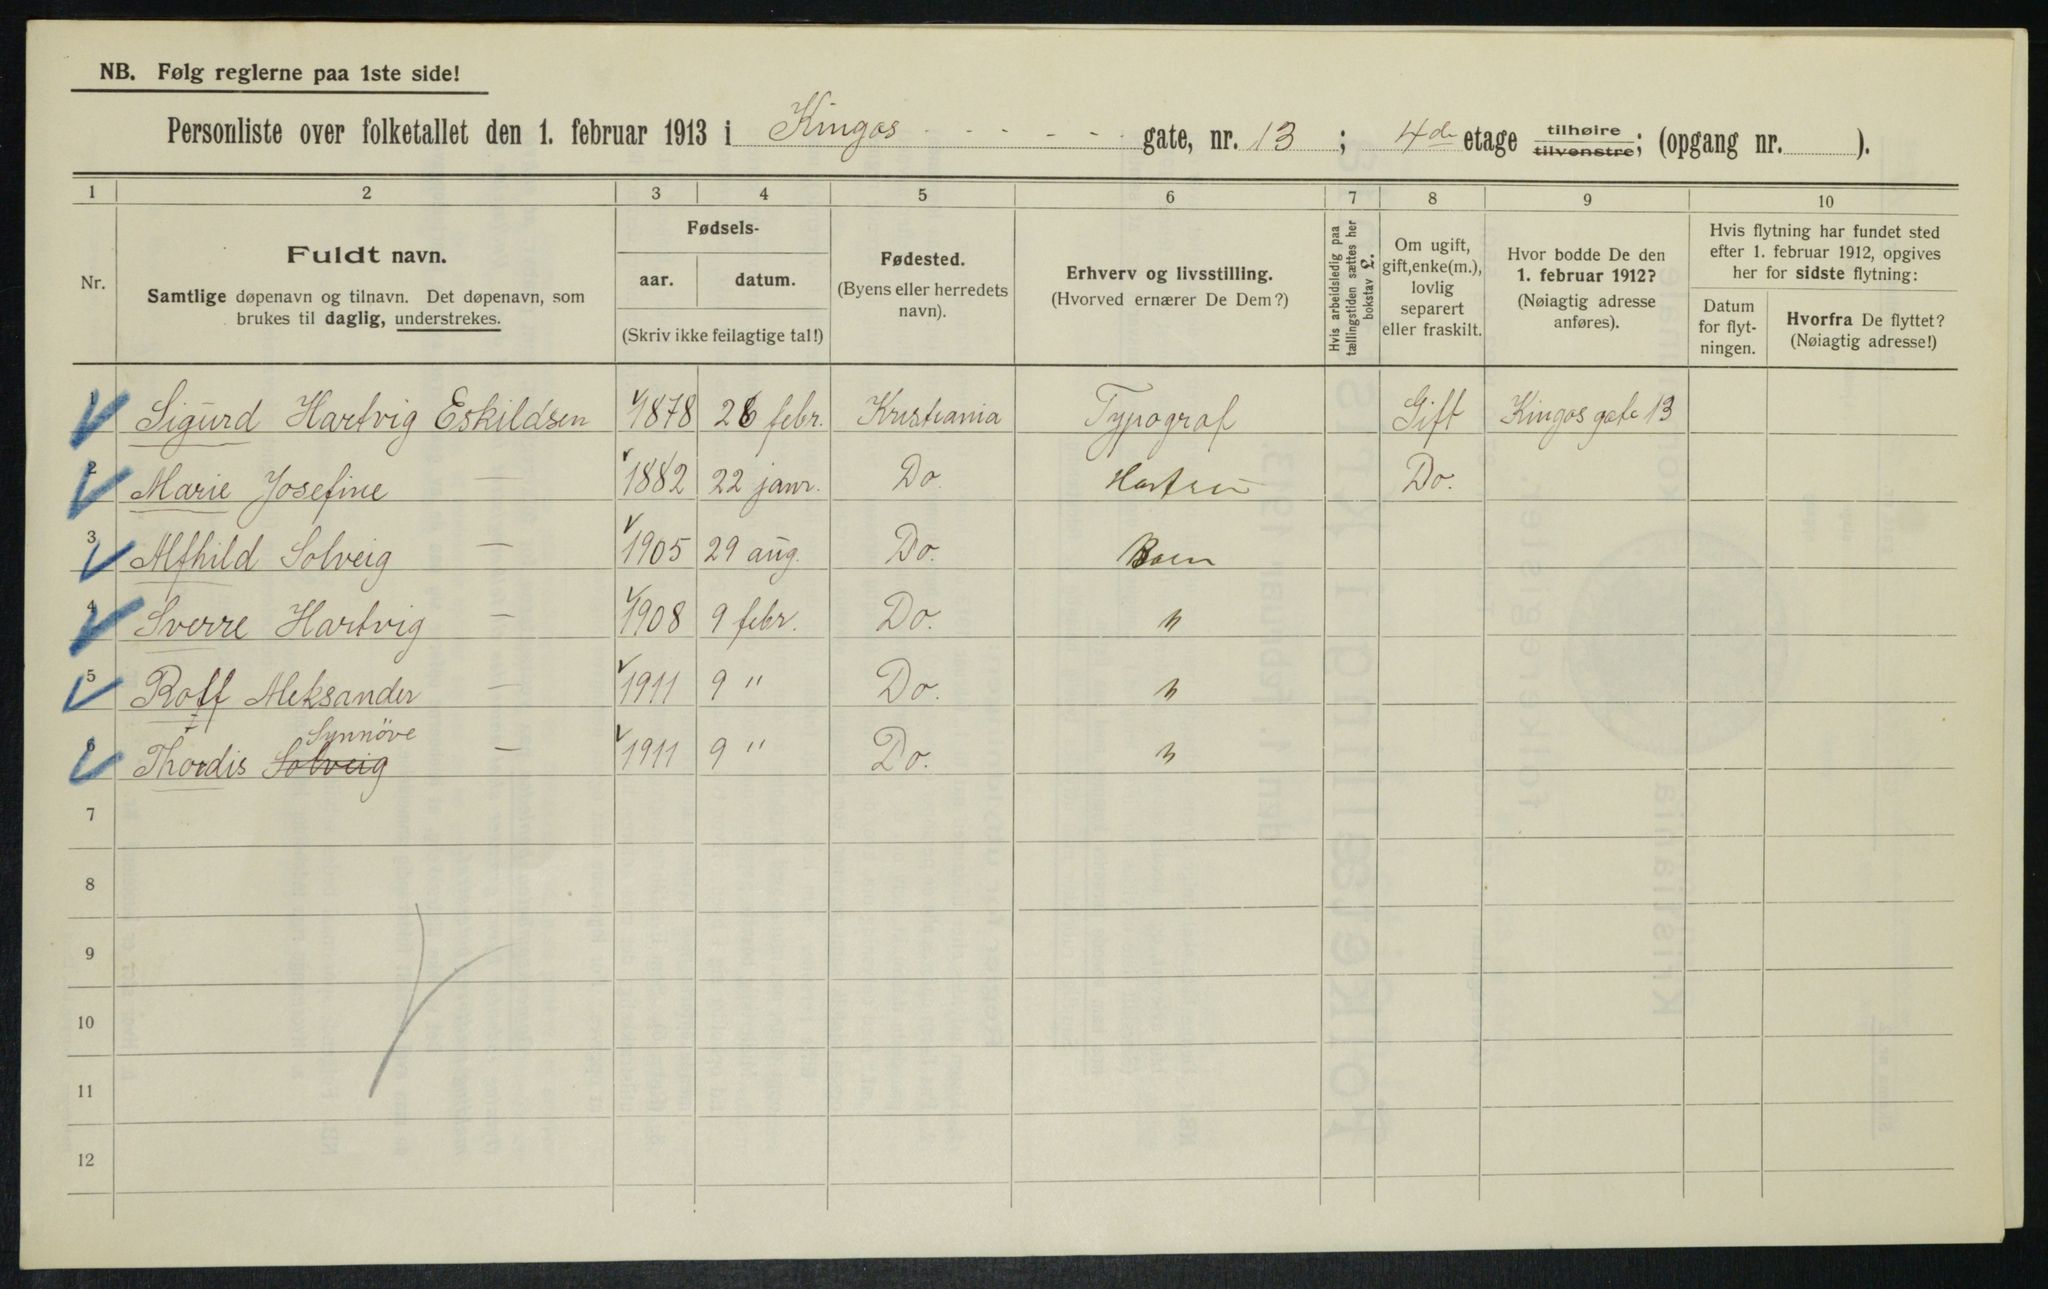 NB. Følg reglerne paa 1ste side!
Personliste over folketallet den 1. februar 1913 i Kingos - - - - - gate, nr. 13 ; 4de etage tilhøire tilvenstre; (opgang nr. ).
1 2 3 4 5 6 7 8 9 10
Nr.
Fuldt navn.
Samtlige døpenavn og tilnavn. Det døpenavn, som
brukes til daglig, understrekes.
Fødsels-
aar. datum.
(Skriv ikke feilagtige tal!)
Fødested.
(Byens eller herredets
navn).
Erhverv og livsstilling.
(Hvorved ernærer De Dem?)
Hvis arbeidsledig paa
tællingstiden sættes her
bokstav £.
Om ugift,
gift, enke(m.),
lovlig
separert
eller fraskilt.
Hvor bodde De den
1. februar 1912?
(Nøiagtig adresse
anføres).
Hvis flytning har fundet sted
efter 1. februar 1912, opgives
her for sidste flytning:
Datum
for flyt-
ningen.
Hvorfra De flyttet?
(Nøiagtig adresse!)
1 Sigurd Hartvig Eskildsen 1878 26 febr. Kristiania Typograf Gift Kingos gate 13
2 Marie Josefine — 1882 22 janr. Do. Hustru Do.
3 Alfhild Solveig — 1905 29 aug. Do. Barn
4 Sverre Hartvig — 1908 9 febr. Do. "
5 Rolf Aleksander — 1911 9 " Do. "
Synnöve
6 Thordis Solveig — 1911 9 " Do. "
7
8
9
10
11
12